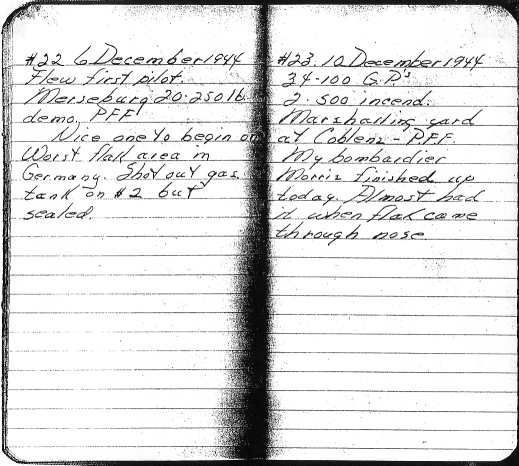 #22 6 December 1944
Flew first pilot.
Merseburg 20-250 lb.
demo, PFF
Nice one to begin on
Worst flak area in
Germany. Shot out gas
tank on #2 but
sealed.
#23. 10 December 1944
34-100 G.P.'s
2-500 incend.
Marshalling yard
at Coblenz - PFF.
My bombardier
Morris finished up
today. Almost had
it when flak came
through nose